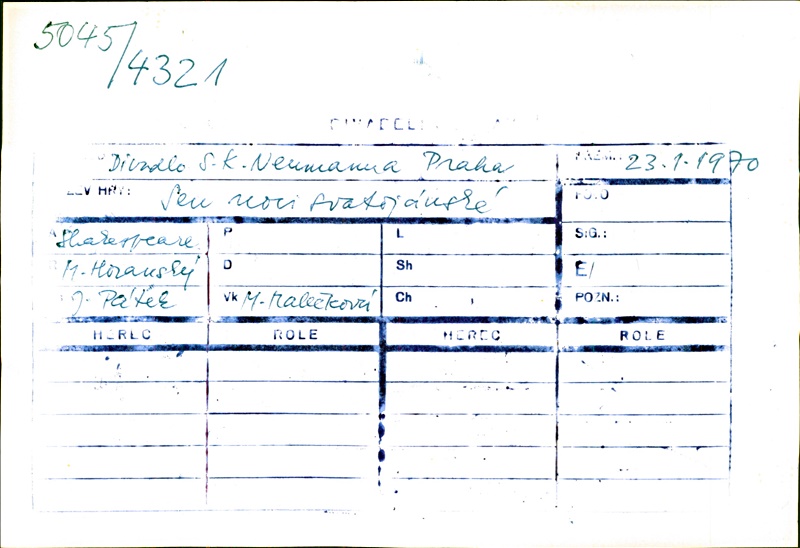 5045/
4321
Divadlo S.K. Neumanna Praha 23.1.1970
HRY: Sen noci svatojánské
Shakespeare P L SIG.:
M. Horanský D Sh E/
J. Pátek Vk M. Malečková Ch POZN.:
HEREC ROLE HEREC ROLE